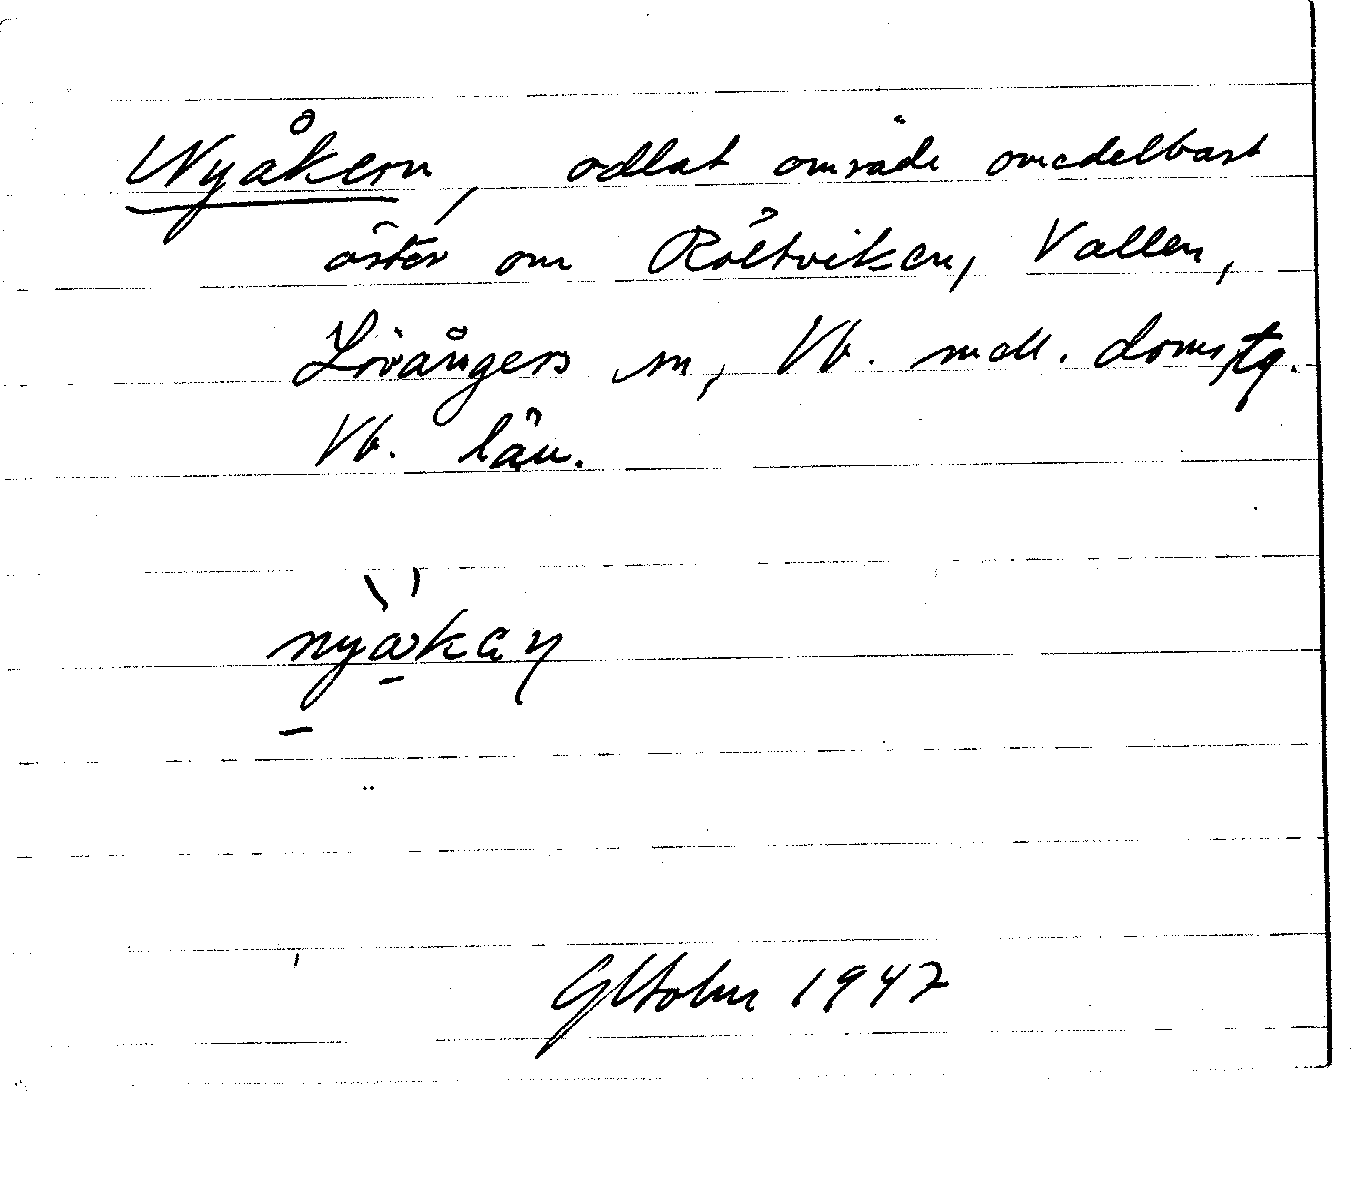 Nyåkern, odlat område omedelbart
öster om Röltviken, Vallen,
Lövångers sn, Vb. mell. doms.tg.
Vb. län.
nyåkan
1947